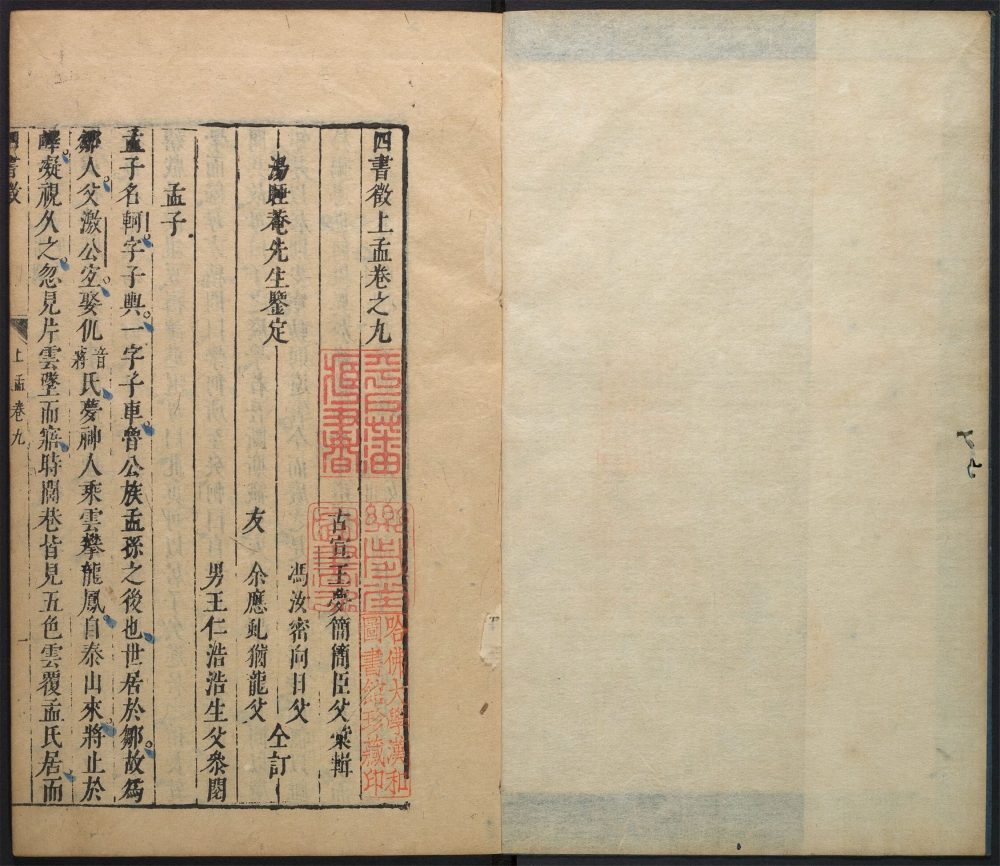 四書徵上孟卷之九
湯睡菴先生鑒定
古宣王夢簡簡臣父彙輯
馮汝密向日父
友 余應虬猶龍父 仝訂
男王仁浩浩生父叅閱
孟子
孟子名軻字子輿一字子車魯公族孟孫之後也世居於鄒故爲
鄒人父激公宜娶仉音蔣氏夢神人乘雲攀龍鳳自泰山來將止於
嶧凝視久之忽見片雲墜而寤時閭巷皆見五色雲覆孟氏居而
四書徵
上孟卷九
藏書
哈佛大學漢和
圖書館珍藏印